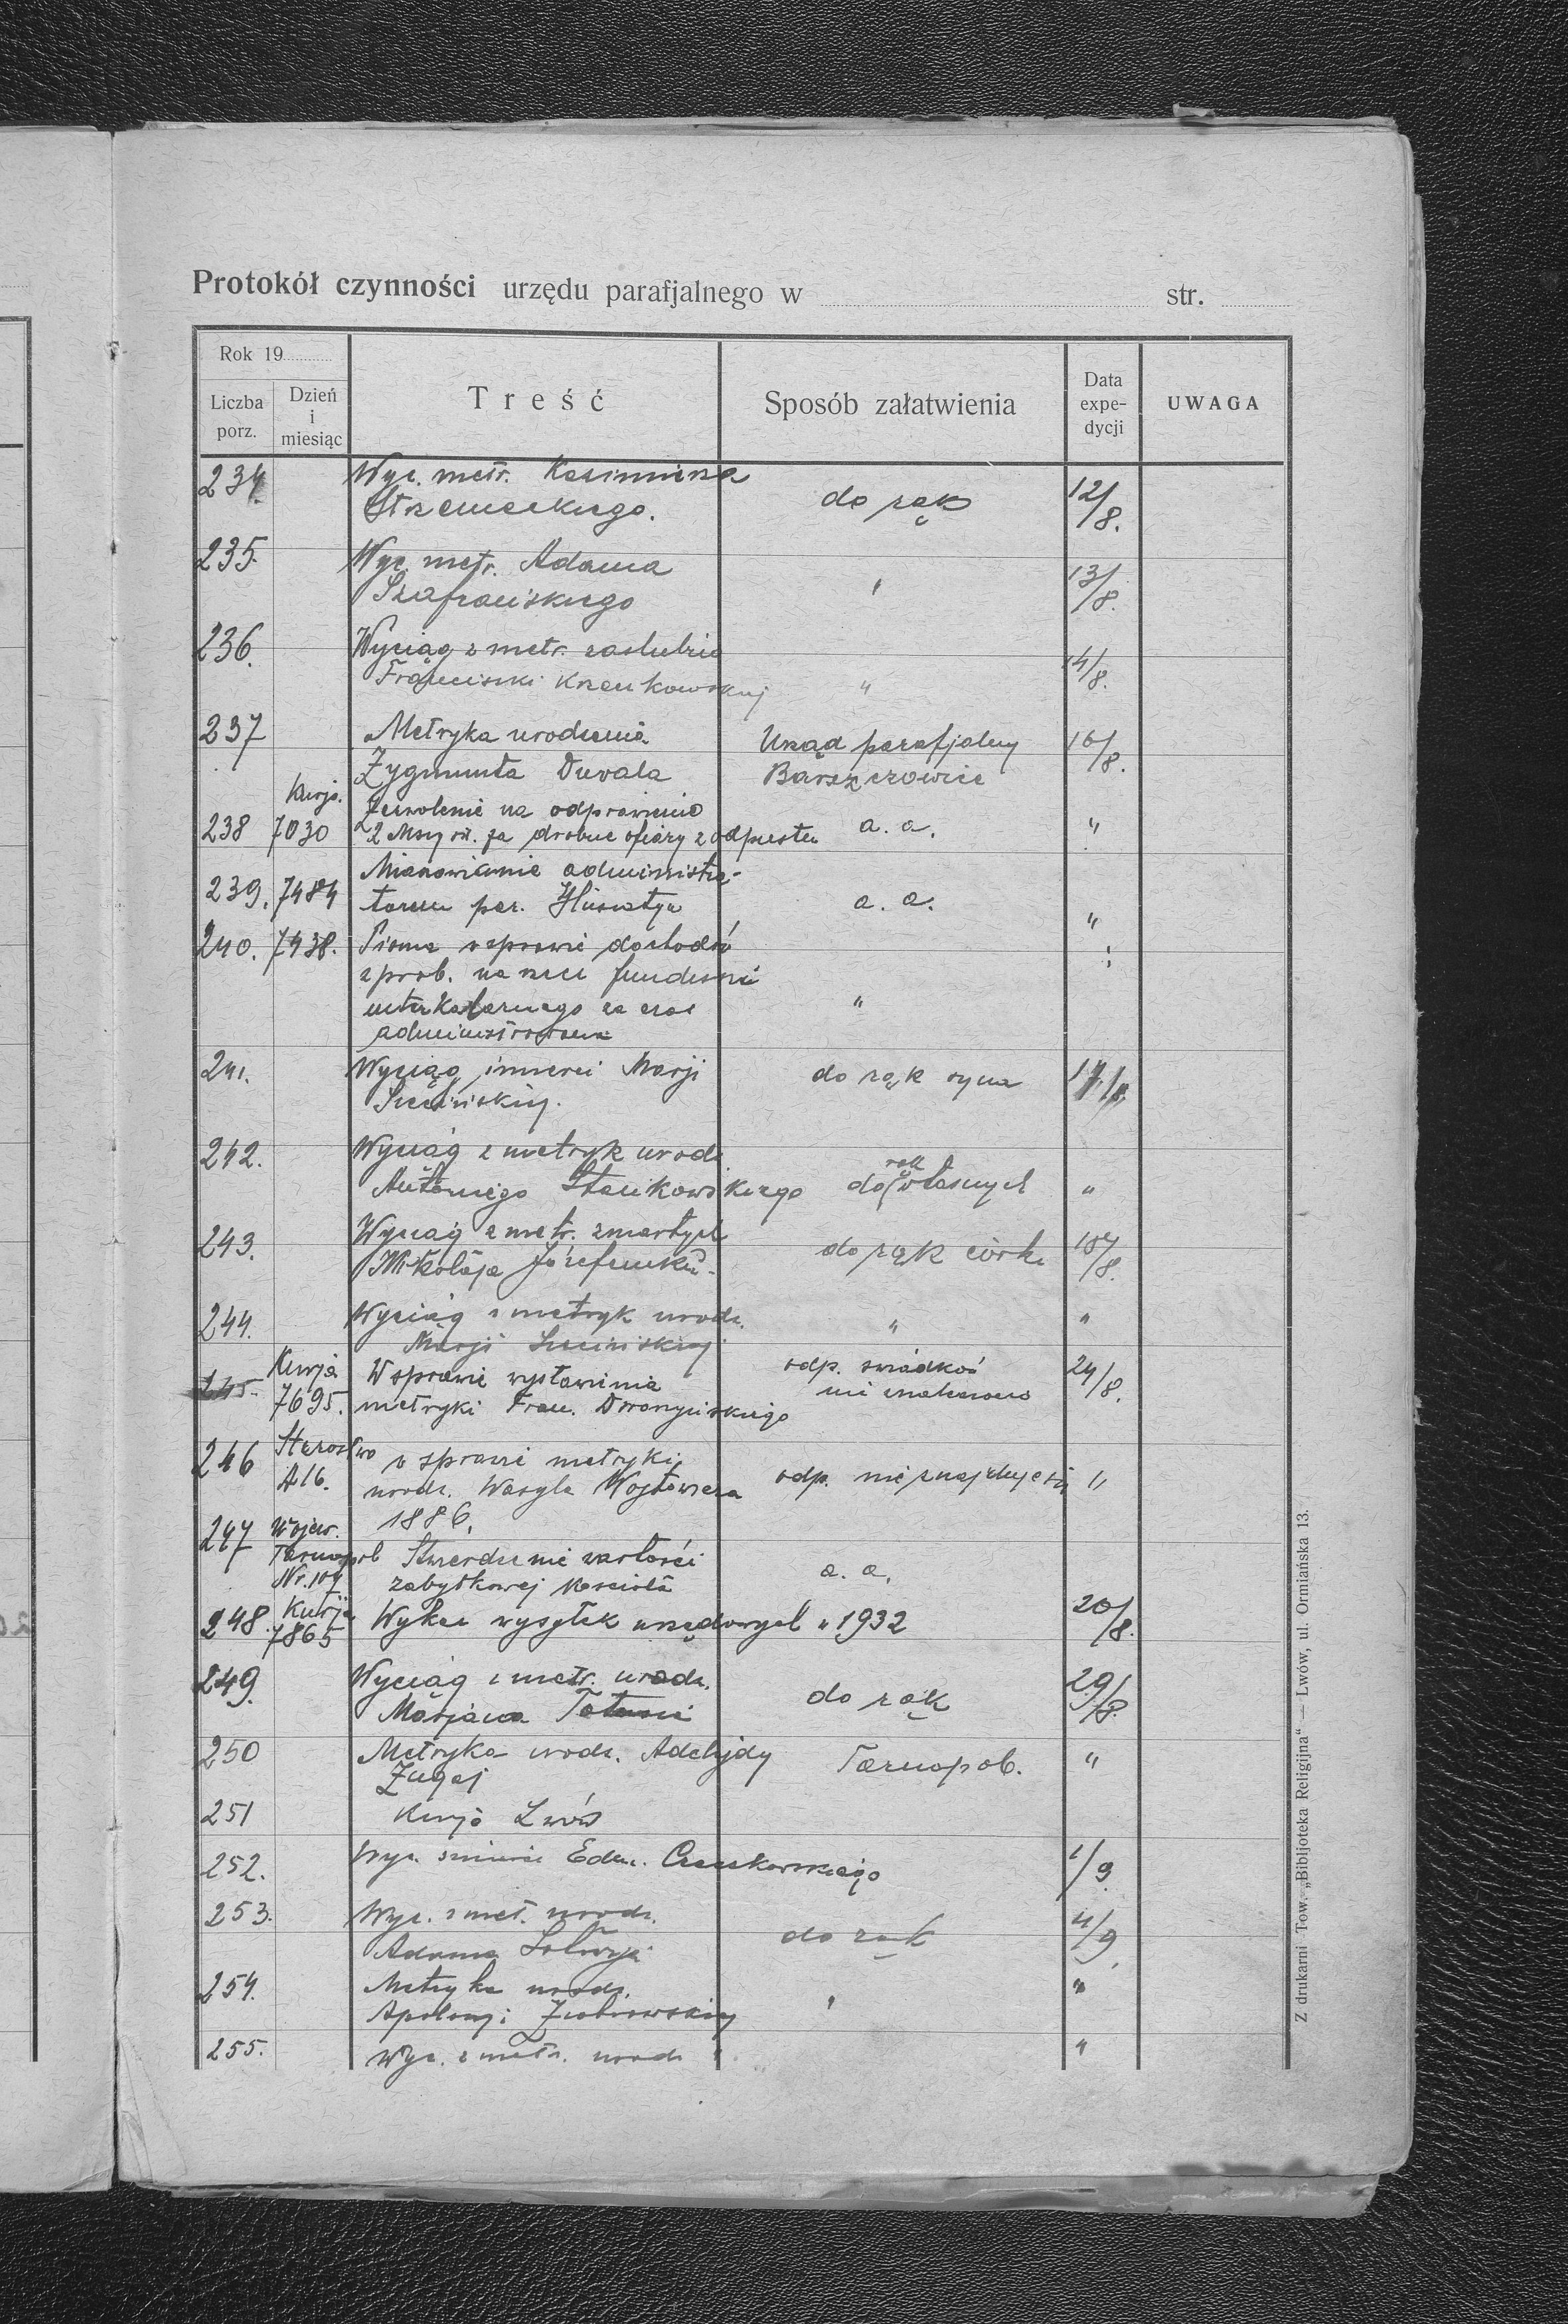 Protokół czynności urzędu parafjalnego w str.
Rok 19
Liczba porz.
Dzień i miesiąc
Treść
Sposób załatwienia
Data expe-dycji
UWAGA
234. Wyc. metr. Kazimierza 12/8.
do rąk
235. Wyc. metr. Adama 13/8.
Szafrańskiego "
236. Wyciąg z metr. zaślubin 14/8.
Franciszki "
237 Metryka urodzenia Urząd parafjalny 16/8.
Zygmunta Duvala Barszczowice
Kurja.
238 7030 Zezwolenie na odprawienie a. a. "
2 Mszy św. za drobne ofiary z odpustu
239. 7484 Mianowanie administra-
torem par. Husiatyn a. a. "
240. 7438. Pismo w sprawie dochodów "
z prob. na rzecz funduszu
interkalarnego za czas "
241. Wyciąg śmierci Marji do rąk syna 17/8.
242. Wyciąg z metryk urodz. rąk
Antoniego Stankowskiego do własnych "
243. Wyciąg z metr. zmarłych do rąk córki
Mikołaja
244. Wyciąg z metryk urodz. " "
Marji
245. Kurja W sprawie wystawienia odp. 24/8.
7695. metryki Fran.
246 Starostwo w sprawie metryki
A16. urodz. Wasyla Wojtowicza odp. nie znajduje się "
1886.
247 Wojew.
Tarnopol Stwierdzenie wartości
Nr. 107 zabytkowej kościoła a. a.
248. Kurja Wykaz wysyłek urzędowych " 1932 20/8.
7865
249. Wyciąg z metr. urodz. do rąk 29/8.
Marjana
250 Metryka urodz. Adelajdy Tarnopol. "
Zugaj
251 Kurja Lwów
252. Wyc. śmierci Edm. 1/9.
253. Wyc. z met. urodz. do rąk 4/9.
Adama
254. Metryka urodz. " "
Apolonji
255. Wyc. z metr. urodz. " "
Z drukarni Tow. „Bibljoteka Religijna“ — Lwów, ul. Ormiańska 13.